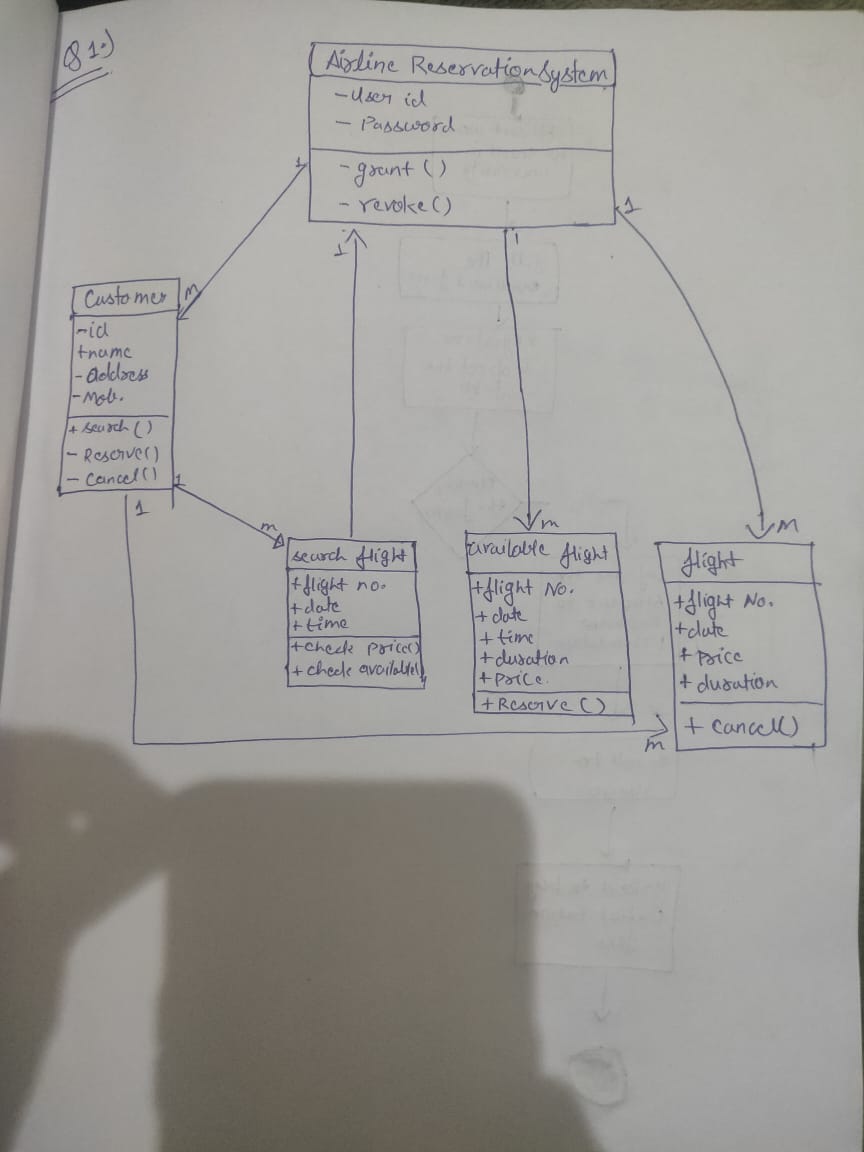 Q 1.)
Airline Reservation System
- User id
- Password
- grant ()
- revoke()
1
1
1
1
Customer
M
- id
+ name
- Address
- Mob.
+ search ()
- Reserve()
- Cancel()
1
1
m
m
M
search flight
+ flight no.
+ date
+ time
+ check price()
+ check available()
available flight
+ flight No.
+ date
+ time
+ duration
+ price.
+ Reserve ()
flight
+ flight No.
+ date
+ price
+ duration
+ cancel()
m